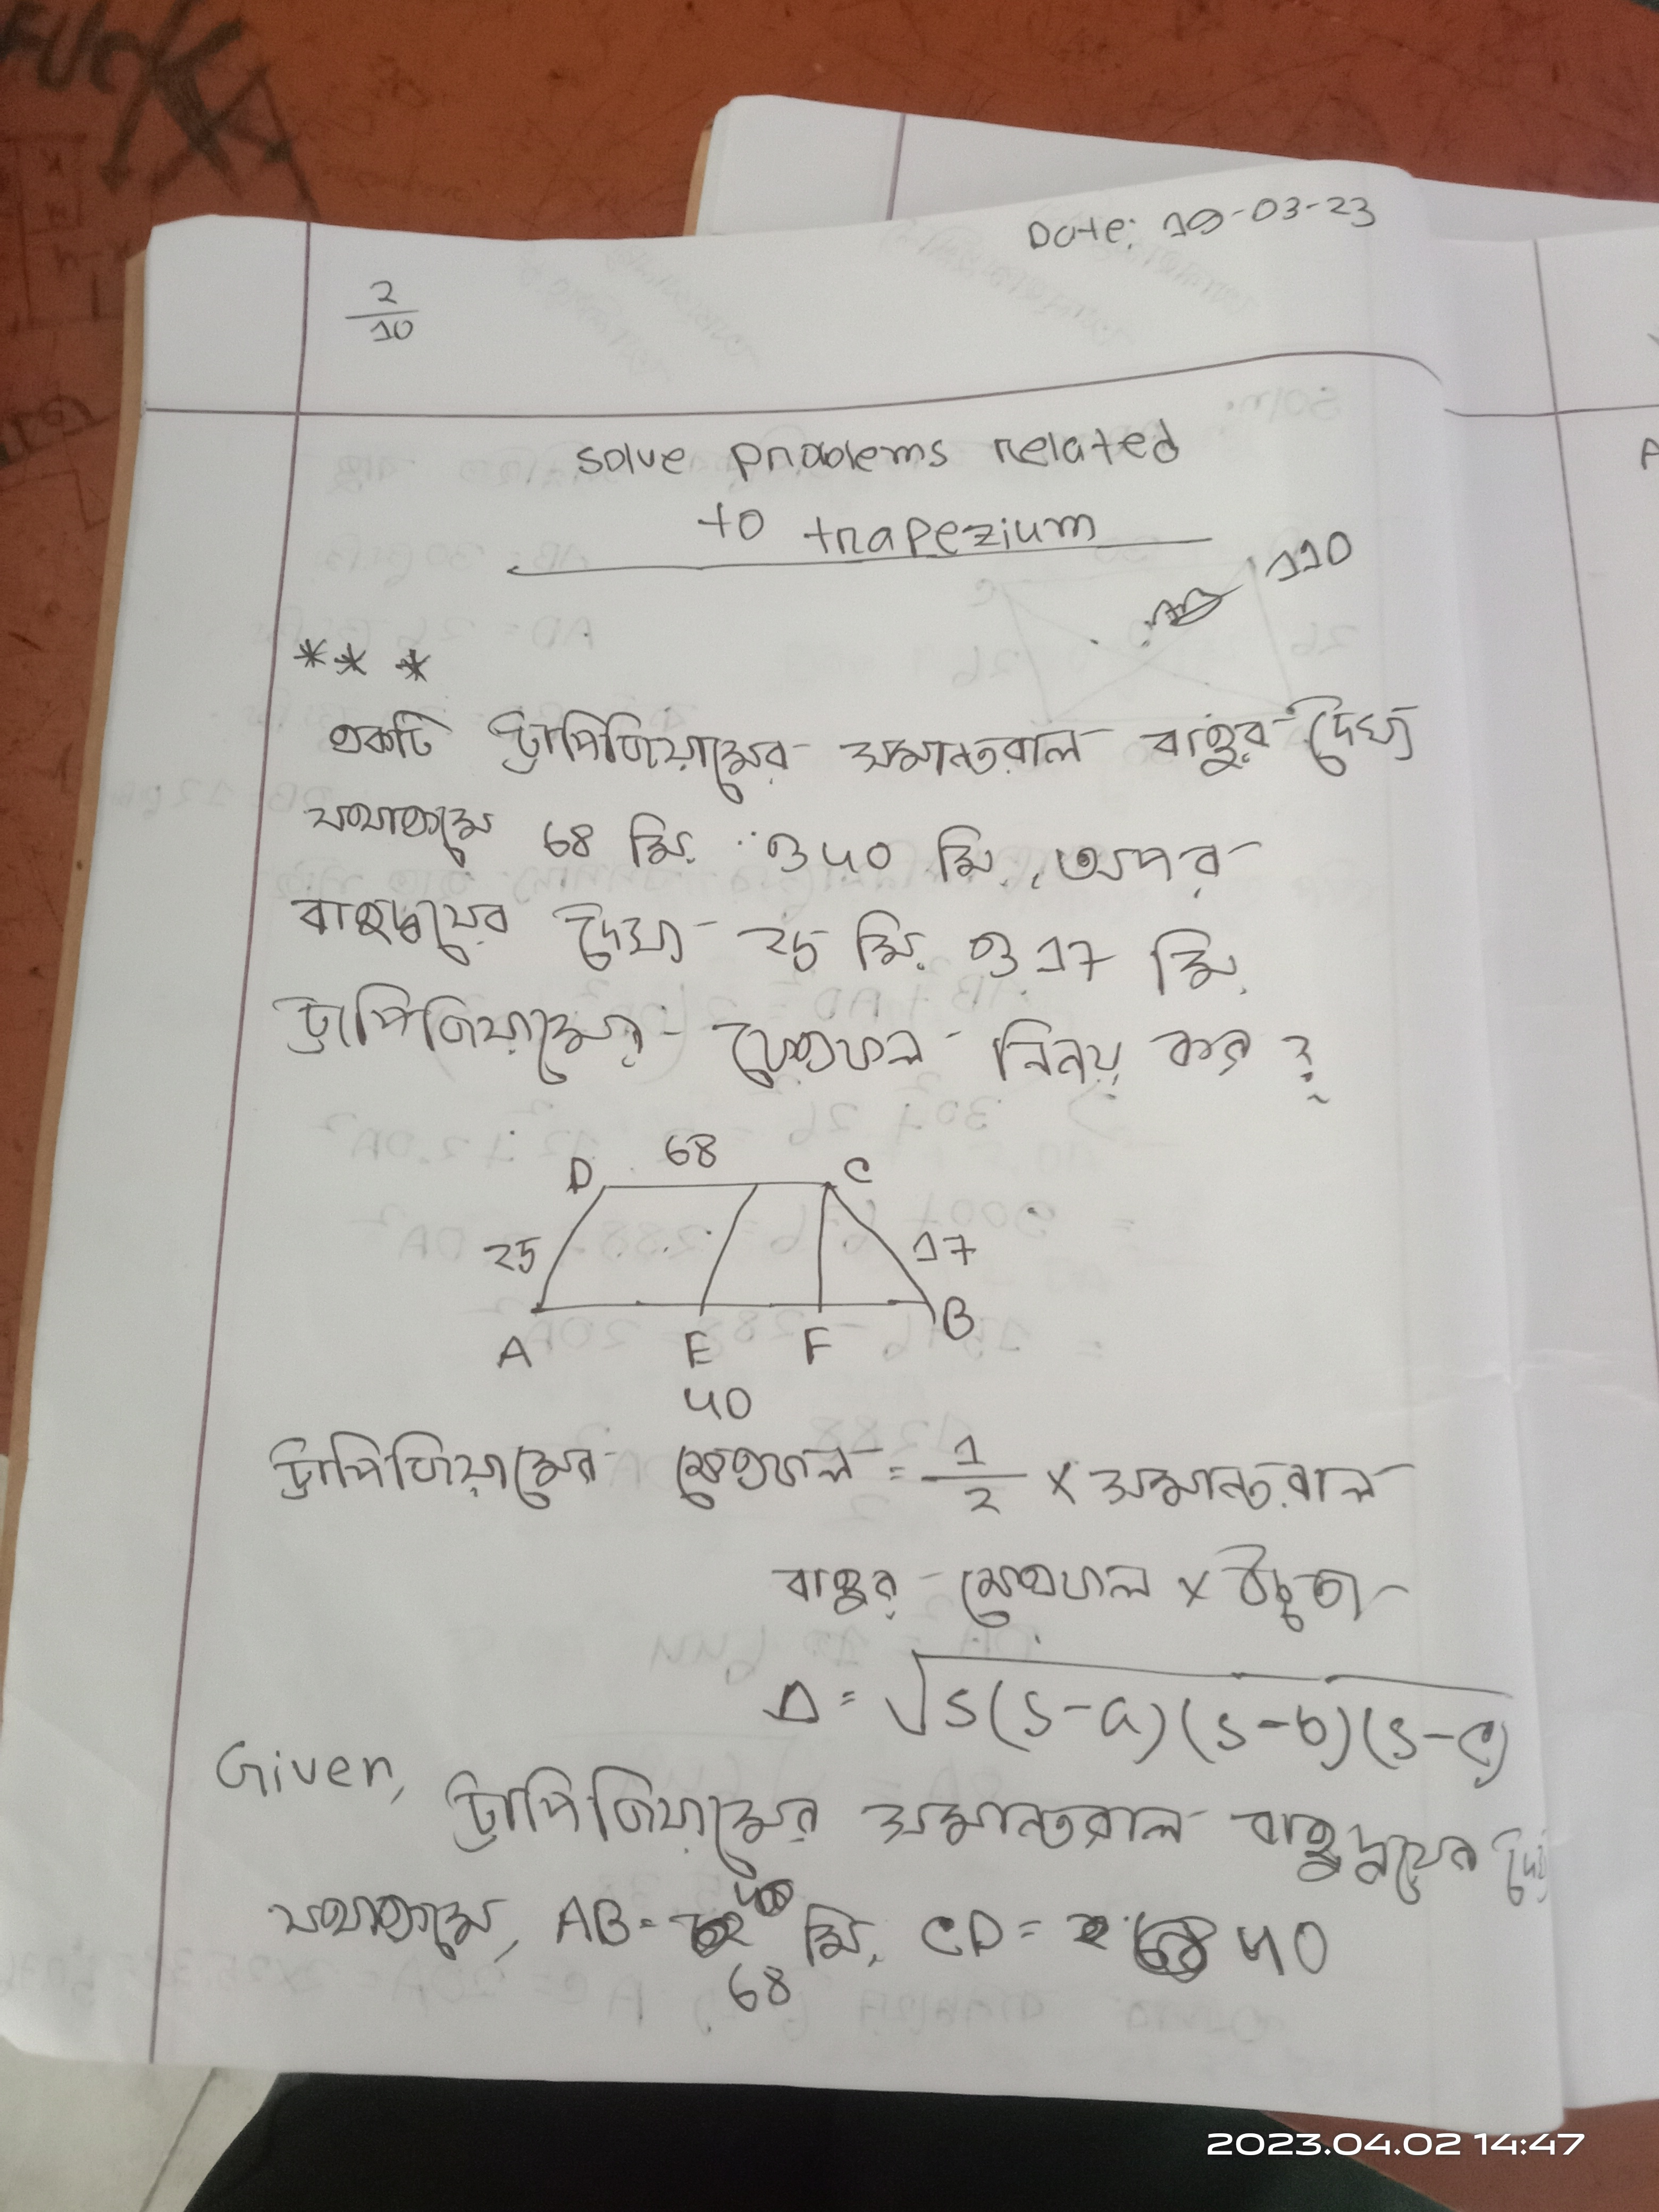 FUCK
Date: 19-03-23
2
10
solve problems related
to trapezium
110
***
একটি ট্রাপিজিয়ামের সমান্তরাল বাহুর দৈর্ঘ্য
যথাক্রমে 68 মি. ও 40 মি. অপর
বাহুদ্বয়ের দৈর্ঘ্য 25 মি. ও 17 মি.
ট্রাপিজিয়ামের ক্ষেত্রফল নির্নয় কর ?
D 68 C
25 17
A E F B
40
ট্রাপিজিয়ামের ক্ষেত্রফল = 1/2 × সমান্তরাল
বাহুর ক্ষেত্রফল × উচ্চতা
Δ = √s(s-a)(s-b)(s-c)
Given,
ট্রাপিজিয়ামের সমান্তরাল বাহুদ্বয়ের
যথাক্রমে, AB = 68 মি. CD = 40
2023.04.02 14:47